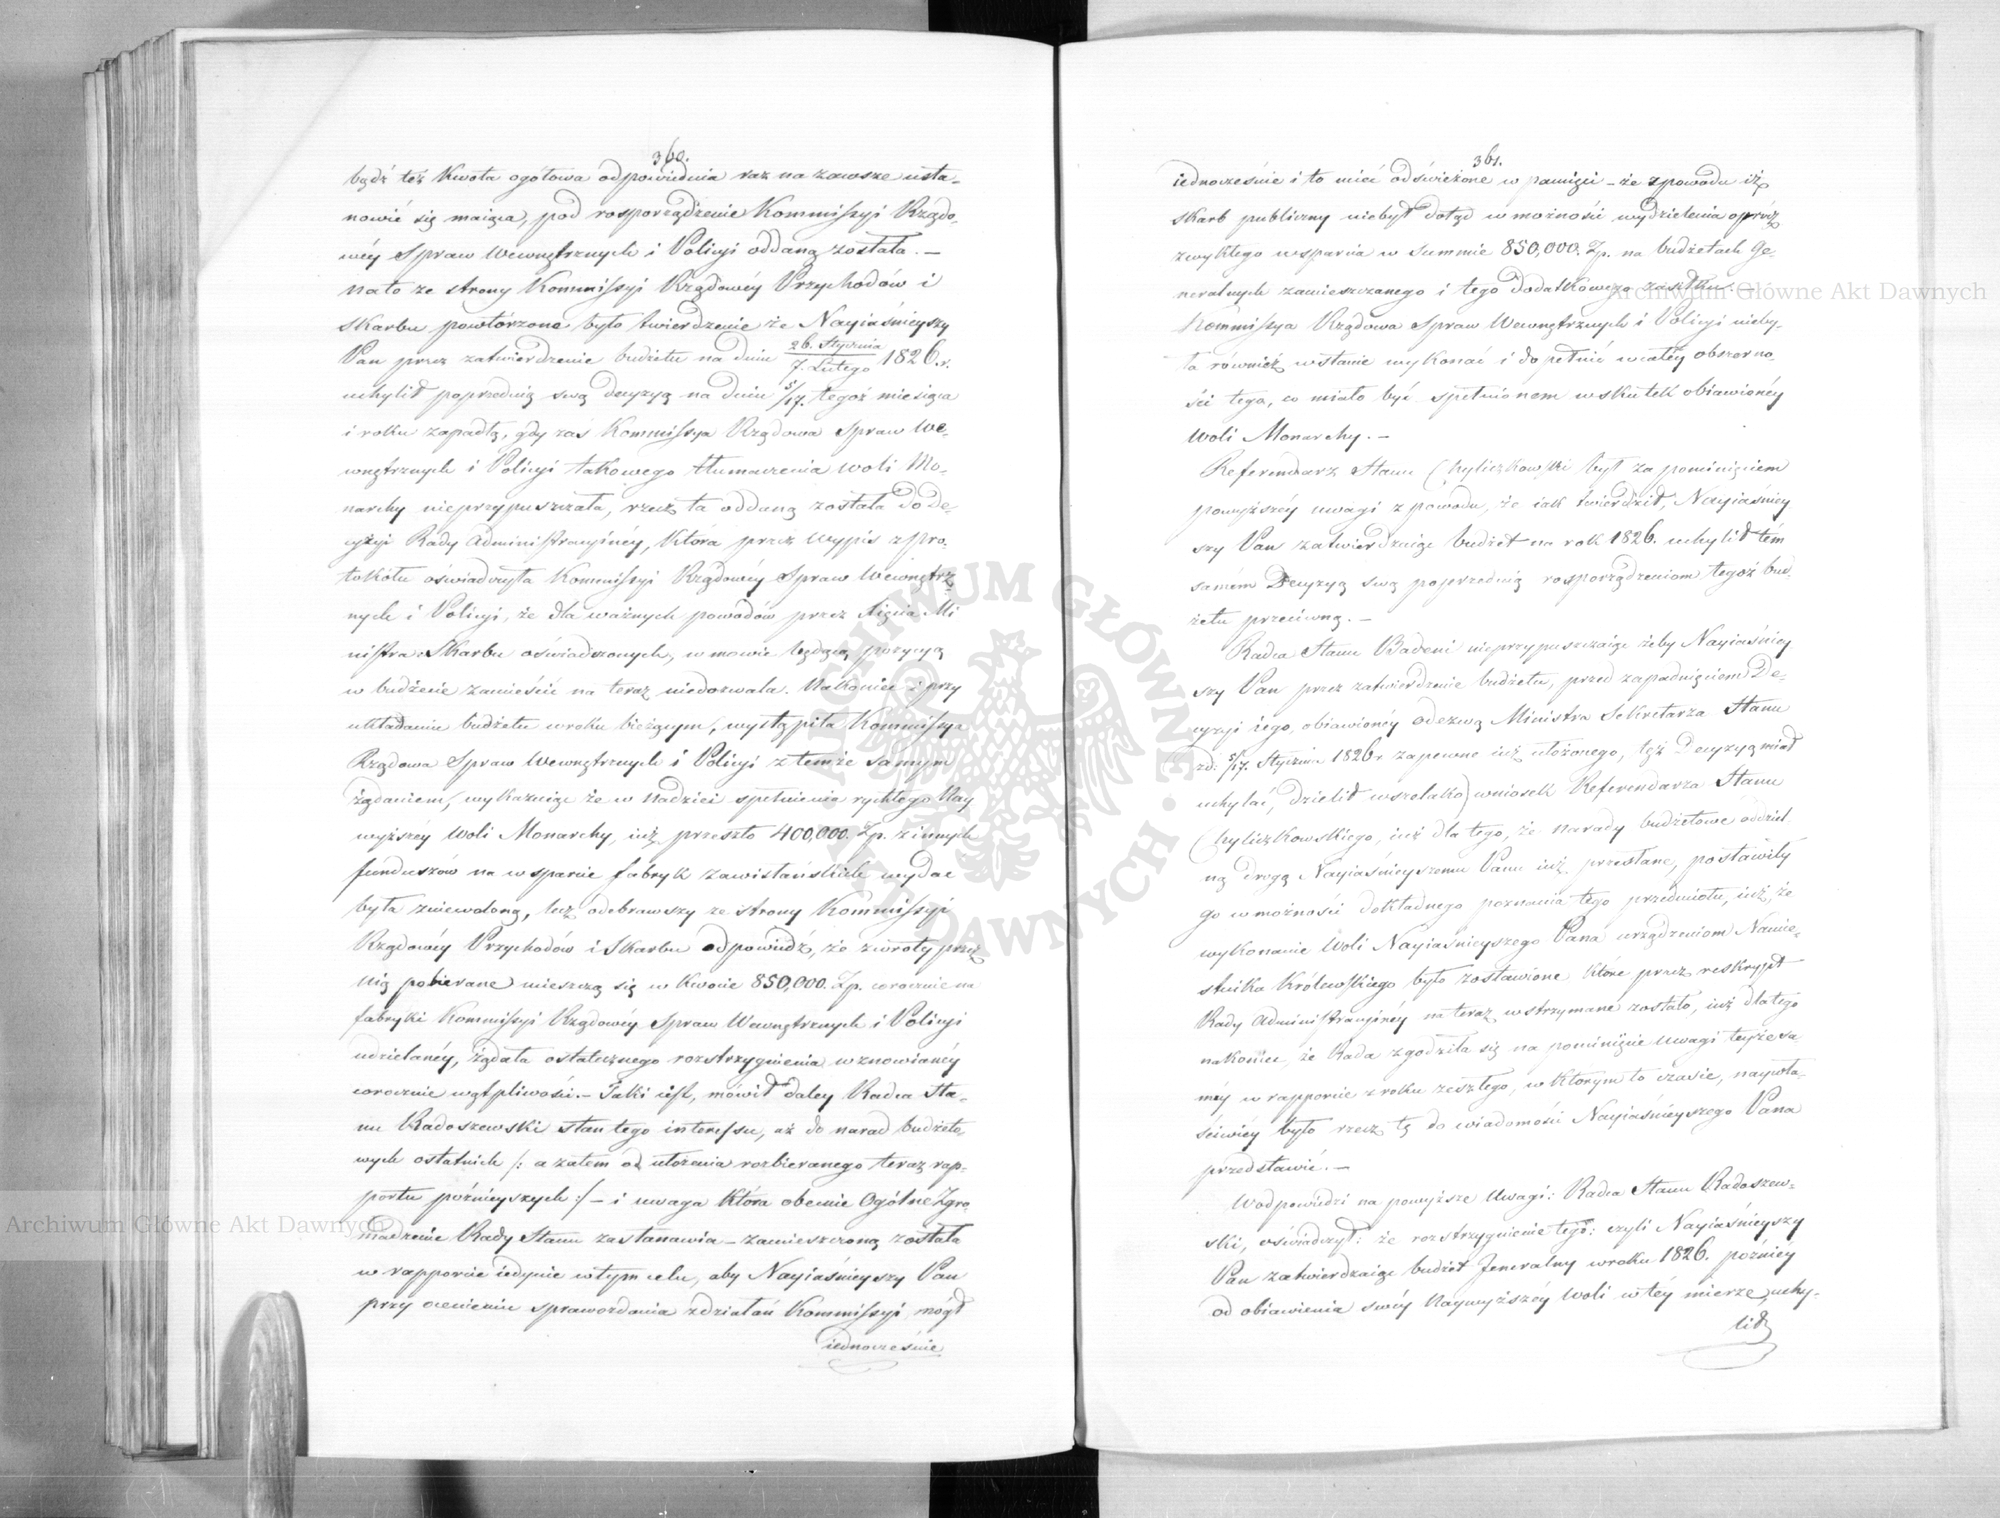 360.
bądź też kwota ogółowa odpowiednia raz na zawsze usta-
nowić się maiąca, pod rosporządzenie Kommissyi Rządo-
wéy Spraw Wewnętrznych i Policyi oddaną została. –
Na to ze strony Kommissyi Rządowéy Przychodów i
Skarbu powtórzone było twierdzenie że Nayiaśnieyszy
Pan przez zatwierdzenie budżetu na dniu 26. Stycznia / 7. Lutego 1826 r.
uchylił poprzednią swą decyzyą na dniu 5/17. tegoż miesiąca
i roku zapadłą, gdy zaś Kommissya Rządowa Spraw We-
wnętrznych i Policyi takowego tłumaczenia woli Mo-
narchy nieprzypuszczała, rzecz ta oddaną została do De-
cyzyi Rady Administracyinéy, która przez wypis z pro-
tokółu oświadczyła Kommissyi Rządowéy Spraw Wewnętrz
nych i Policyi, że dla ważnych powodów przez Xięcia Mi
nistra Skarbu oświadczonych, w mowie będącą pozycyą
w budżecie zamieścić na teraz niedozwala. Nakoniec i przy
układaniu budżetu w roku bieżącym, wystąpiła Kommissya
Rządowa Spraw Wewnętrznych i Policyi z temże samym
żądaniem, wykazuiąc że w nadziei spełnienia rychłego Nay
wyższéy Woli Monarchy, iuż przeszło 400,000. Zp. z innych
funduszów na wsparcie fabryk zawistańskich wydać
była zniewoloną, lecz odebrawszy ze strony Kommissyi
Rządowéy Przychodów i Skarbu odpowiedź, że zwroty przez
nią pobierane mieszczą się w kwocie 850,000. Zp. corocznie na
fabryki Kommissyi Rządowéy Spraw Wewnętrznych i Policyi
udzielanéy, żądała ostatecznego rozstrzygnienia wznowianéy
corocznie wątpliwości. – Taki iest, mówił daléy Radca Sta-
nu Radoszewski stan tego interessu, aż do narad budżeto-
wych ostatnich /: a zatem od ułożenia rozbieranego teraz rap-
portu późnieyszych :/ – i uwaga która obecnie Ogólne Zgro-
madzenie Rady Stanu zastanawia – zamieszczoną została
w rapporcie iedynie w tym celu, aby Nayiaśnieyszy Pan
przy ocenieniu sprawozdania z działań Kommissyi, mógł
iednocześnie
361.
iednocześnie i to mieć odświeżone w pamięci – że z powodu iż
skarb publiczny niebył dotąd w możności wydzielenia oprócz
zwykłego wsparcia w summie 850,000. Zp. na budżetach Ge-
neralnych zamieszczanego i tego dodatkowego zasiłku. –
Kommissya Rządowa Spraw Wewnętrznych i Policyi nieby-
ła również w stanie wykonać i dopełnić w całéy obszerno-
ści tego, co miało być spełnionem w skutek obiawionéy
Woli Monarchy. –
Referendarz Stanu Chyliczkowski był za pominięciem
powyższéy uwagi z powodu, że iak twierdził, Nayiaśniey
szy Pan zatwierdzaiąc budżet na rok 1826. uchylił tém
samém Decyzyą swą poprzednią rosporządzeniom tegoż bud-
żetu przeciwną. –
Radca Stanu Badeni nieprzypuszczaiąc żeby Nayiaśniey
szy Pan przez zatwierdzenie budżetu, przed zapadnięciem De-
cyzyi iego, obiawionéy odezwą Ministra Sekretarza Stanu
z d. 5/17. Stycznia 1826 r. zapewne iuż ułożonego, tęż Decyzyą miał
uchylać, dzielił wszelako wniosek Referendarza Stanu
Chyliczkowskiego, iuż dla tego, że narady budżetowe oddziel-
ną drogą Nayiaśnieyszemu Panu iuż przesłane, postawiły
go w możności dokładnego poznania tego przedmiotu, iuż, że
wykonanie Woli Nayiaśnieyszego Pana urządzeniom Namie-
stnika Królewskiego było zostawione które przez reskrypt
Rady Administracyinéy na teraz wstrzymane zostało, iuż dla tego
nakoniec, że Rada zgodziła się na pominięcie Uwagi teyże sa-
méy w rapporcie z roku zeszłego, w którym to czasie, naywła-
ściwiéy było rzecz tę do wiadomości Nayiaśnieyszego Pana
przedstawić. –
W odpowiedzi na powyższe Uwagi: Radca Stanu Radoszew-
ski, oświadczył: że rozstrzygnienie tego: czyli Nayiaśnieyszy
Pan zatwierdzaiąc budżet Jeneralny w roku 1826. późniéy
od obiawienia swéy Naywyższéy Woli w téy mierze, uchy-
lił
Archiwum Główne Akt Dawnych
Archiwum Główne Akt Dawnych
ARCHIWUM GŁÓWNE AKT DAWNYCH